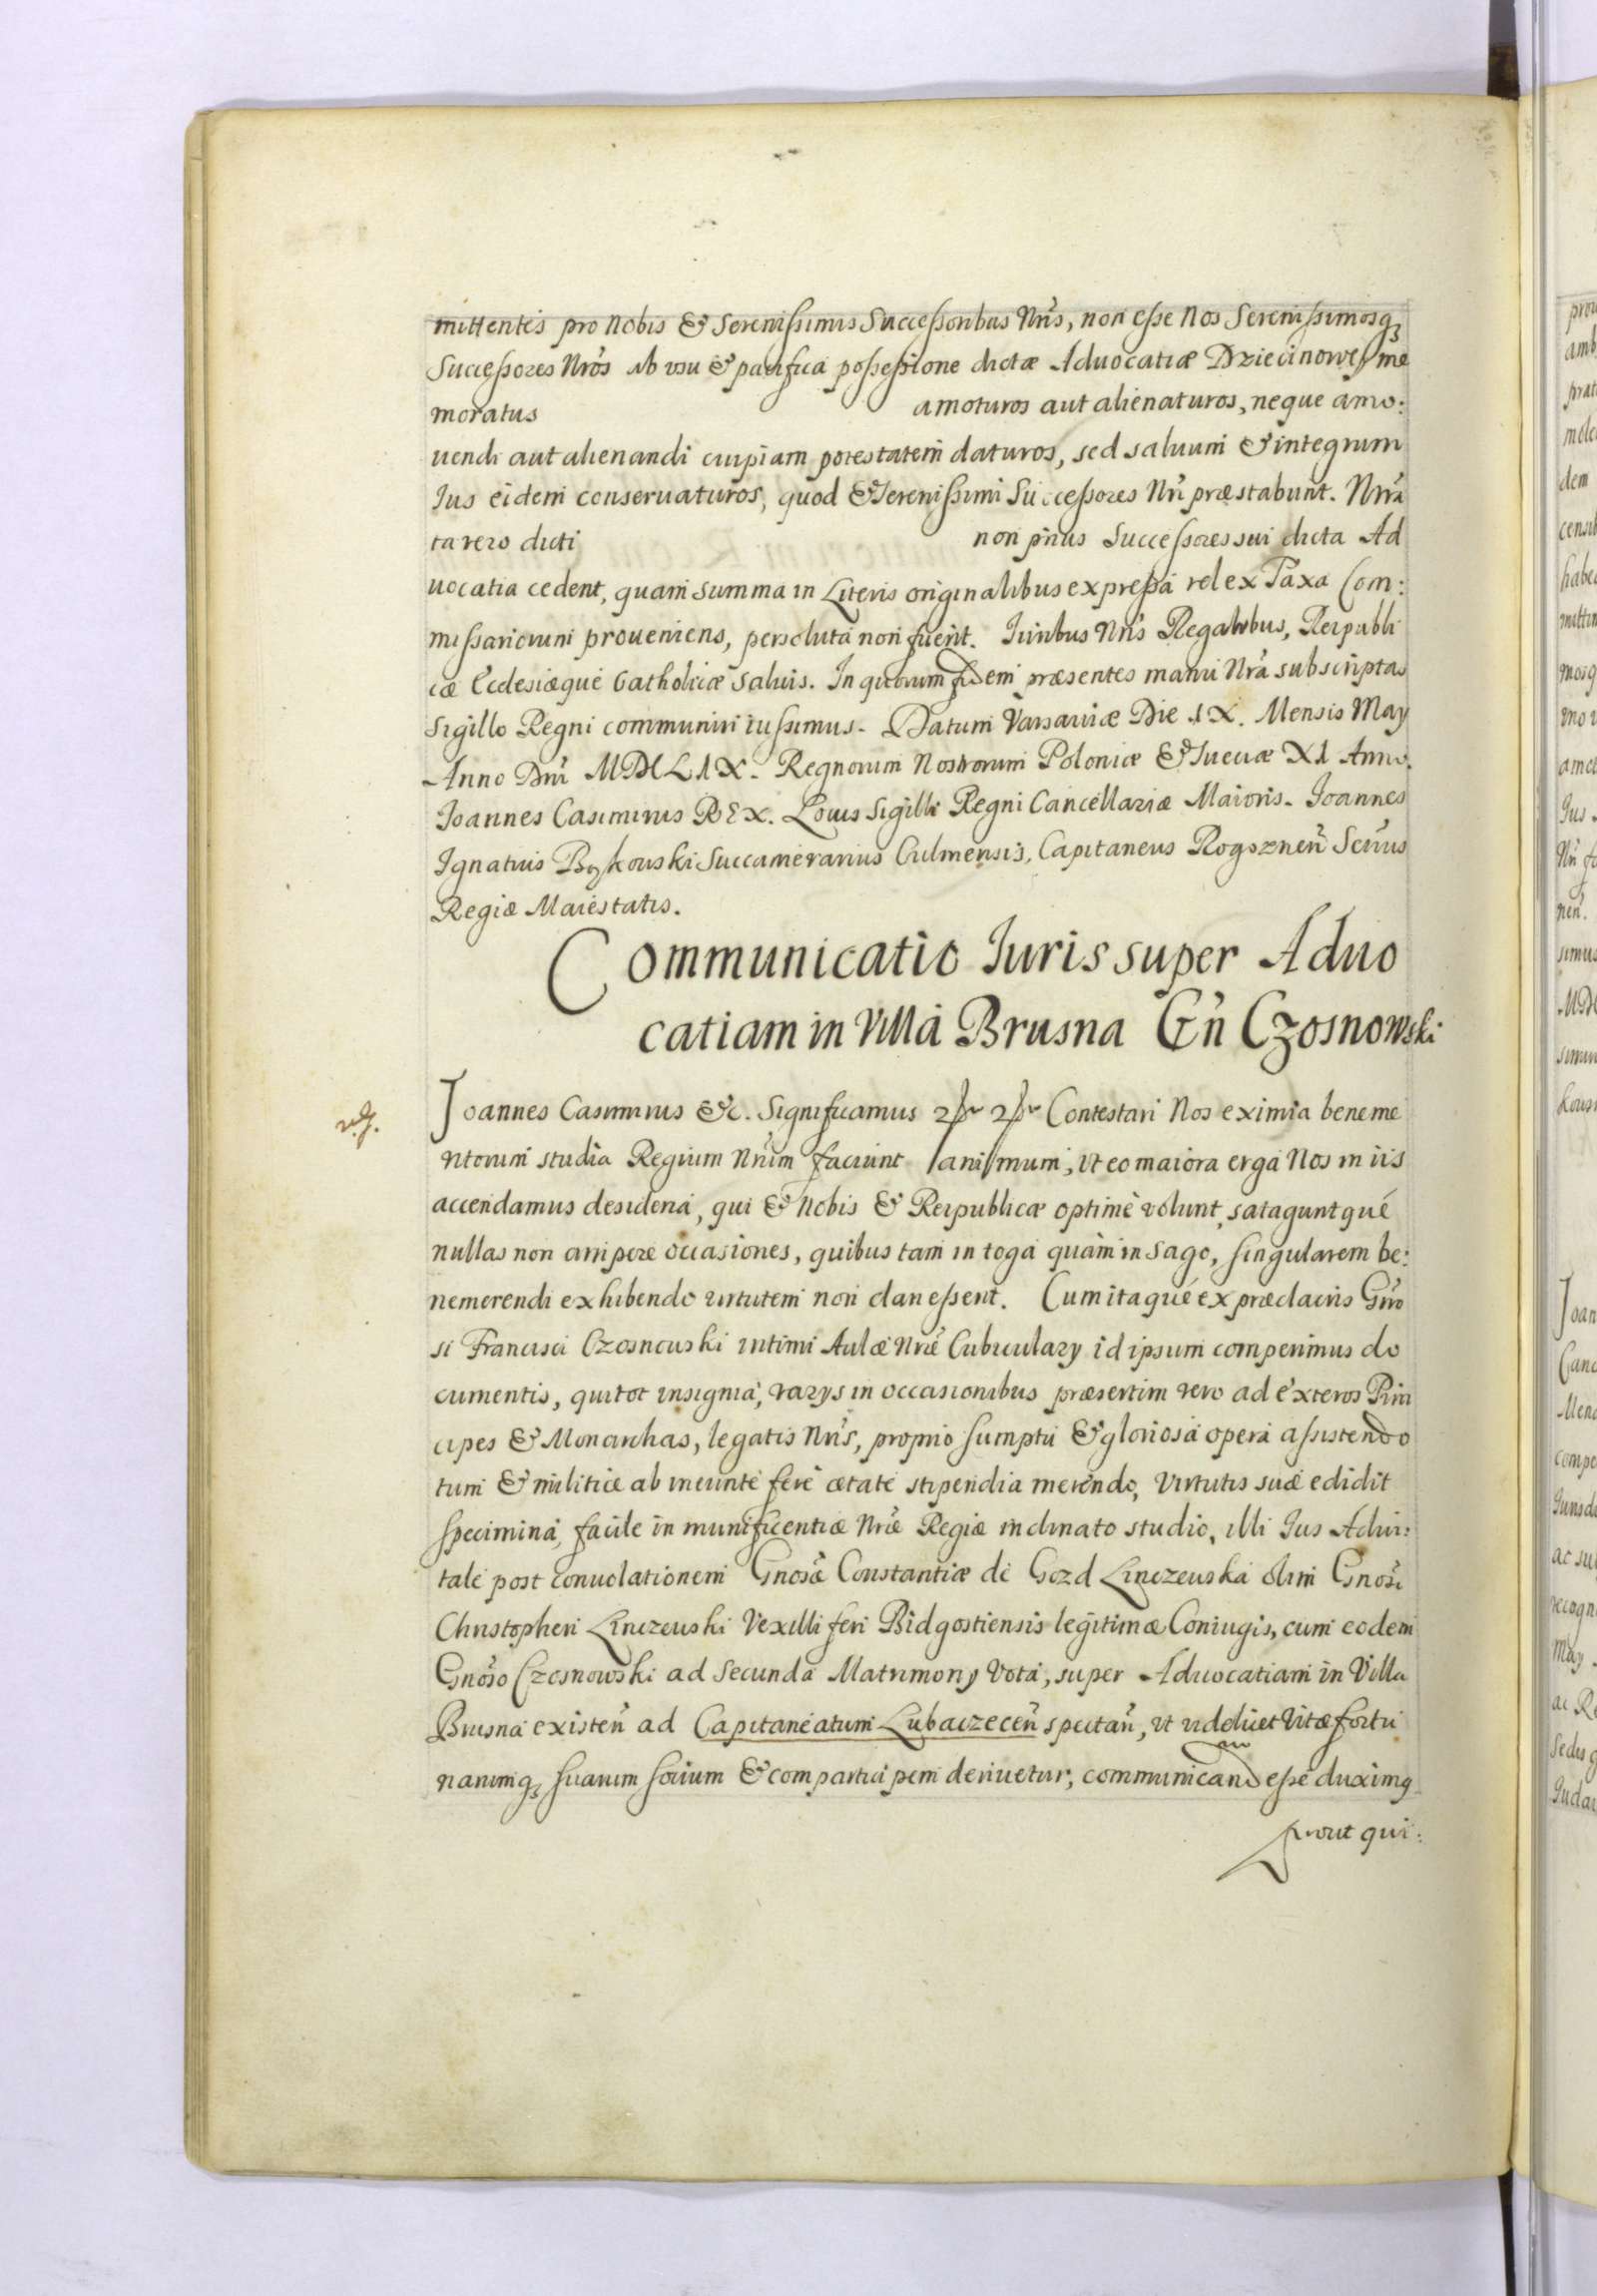 mittentes pro Nobis & Serenissimis Successoribus Nris, non esse Nos Serenissimosq
Successores Nros ab usu & pacifica possessione dictæ Aduocatiæ Dziecinowej me
moratus amoturos aut alienaturos, neque amo:
uendi aut alienandi cuipiam potestatem daturos, sed saluum & integrum
Ius eidem conseruaturos, quod & Serenissimi Successores Nri præstabunt.
ta vero dicti non prius Successores sui dicta Ad
uocatia cedent, quam summa in Literis originalibus expressa vel ex Taxa Com:
missariorum proueniens, persoluta non fuerit. Iuribus Nris Regalibus, Reipubli
cæ Ecclesiæque Catholicæ saluis. In quorum fidem præsentes manu Nra subscriptas
Sigillo Regni communiri iussimus. Datum Varsauiæ Die IX. Mensis May
Anno Dni MDCLIX. Regnorum Nostrorum Poloniæ & Sueciæ XI Anno.
Joannes Casimirus REX. Locus Sigilli Regni Cancellariæ Maioris. Joannes
Ignatius Bąkowski Succamerarius Culmensis, Capitaneus Rogoznen Scrius
Regiæ Maiestatis.
Communicatio Iuris super Aduo
catiam in Villa Brusna Gn Czosnowski
Joannes Casimirus &c. Significamus Contestari Nos eximia beneme
ritorum studia Regium Nrum faciunt animum, ut eo maiora erga Nos in iis
accendamus desideria, qui & Nobis & Reipublicæ optime volunt, satagunt que
nullas non arripere occasiones, quibus tam in toga quam in sago, singularem be:
nemerendi exhibendo virtutem non clarescent. Cum itaque ex præclaris Gnro
si Francisci Czosnowski intimi Aulæ Nræ Cubiculary id ipsum comperimus do
cumentis, qui tot insignia, varys in occasionibus præsertim vero ad exteros Prin
cipes & Monarchas, legatis Nris, proprio sumptu & gloriosa opera assistendo
tum & militiæ ab ineunte fere ætate stipendia merendo, virtutis suæ edidit
specimina, facile in munificentiæ Nræ Regiæ inclinato studio, illi Ius Adui:
tale post conuolationem Gnosæ Constantiæ de Gozd Linczewska olim Gnosi
Christopheri Linczewski Vexilliferi Bidgostiensis legitimæ Coniugis, cum eodem
Gnoso Czosnowski ad secunda Matrimony Vota, super Aduocatiam in Villa
Brusna existen ad Capitaneatum Lubaczecen spectan, ut videlicet Vitæ fortu
narumq suarum socium & comparticipem deriuetur, communicand esse duximq
prout qui: